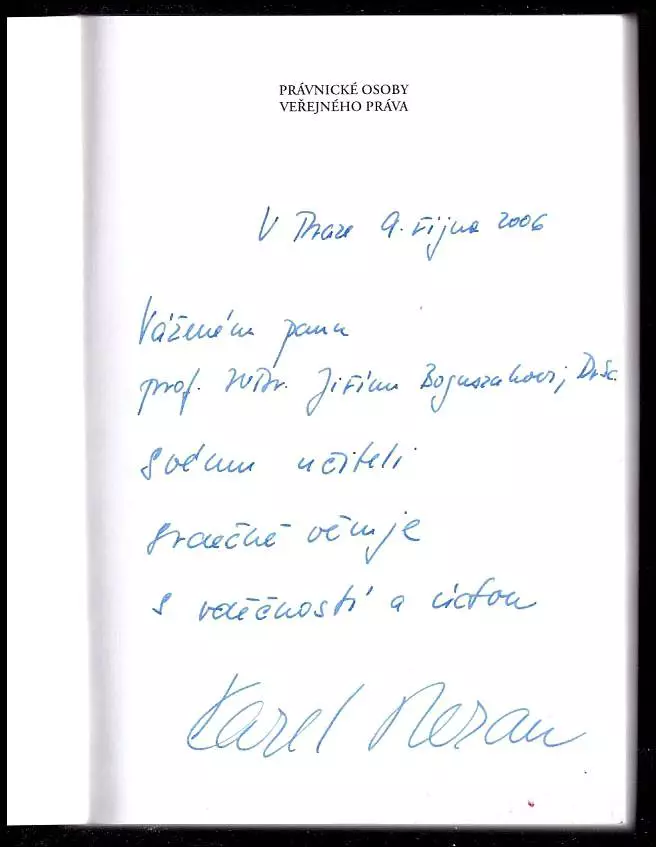 PRÁVNICKÉ OSOBY
VEŘEJNÉHO PRÁVA
V Praze 9. října 2006
Váženému panu
prof. JUDr. Jiřímu Boguszakovi, DrSc.
svému učiteli
srdečně věnuje
s vděčností a úctou
Karel Beran